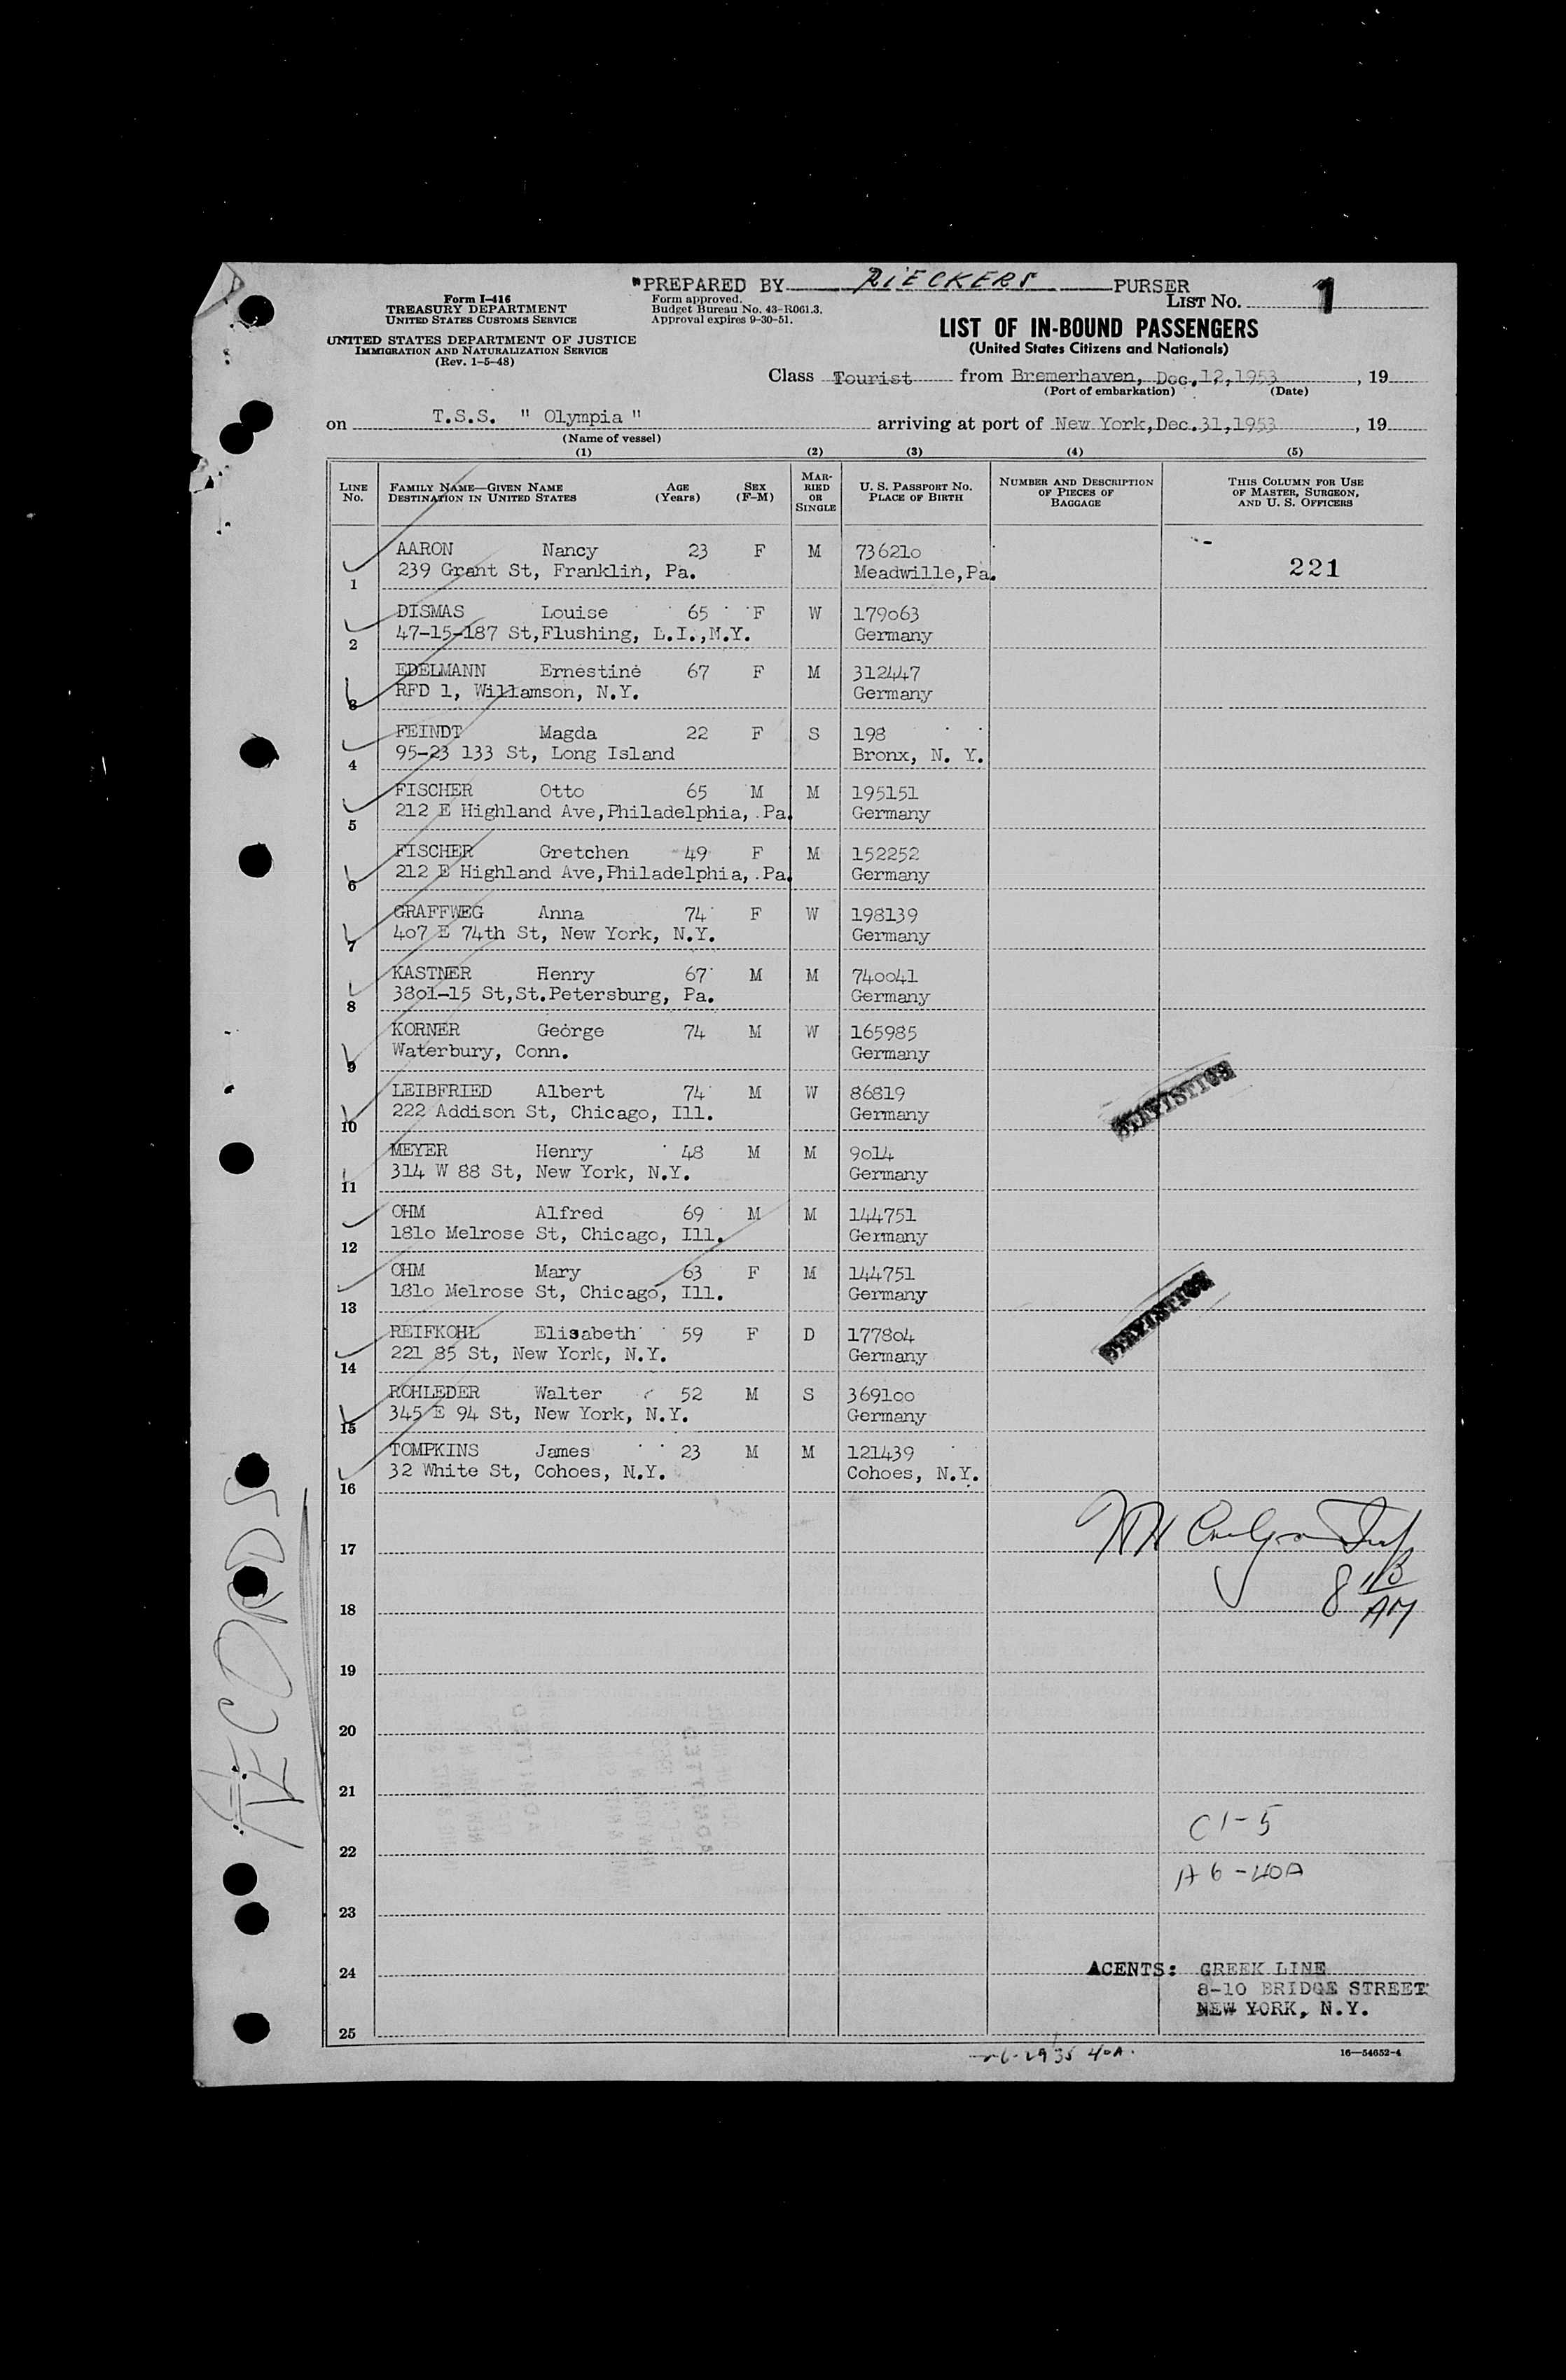 "PREPARED BY RIECKERS PURSER
Form I-416
TREASURY DEPARTMENT
UNITED STATES CUSTOMS SERVICE
UNITED STATES DEPARTMENT OF JUSTICE
IMMIGRATION AND NATURALIZATION SERVICE
(Rev. 1-5-48)
Form approved.
Budget Bureau No. 43-R061.3.
Approval expires 9-30-51.
LIST NO. 1
LIST OF IN-BOUND PASSENGERS
(United States Citizens and Nationals)
Class Tourist from Bremerhaven, Dec.12,1953, 19
(Port of embarkation) (Date)
on T.S.S. " Olympia " arriving at port of New York,Dec.31,1953, 19
(Name of vessel)
(1) (2) (3) (4) (5)
LINE NO. FAMILY NAME—GIVEN NAME DESTINATION IN UNITED STATES AGE (Years) SEX (F-M) MARRIED OR SINGLE U. S. PASSPORT NO. PLACE OF BIRTH NUMBER AND DESCRIPTION OF PIECES OF BAGGAGE THIS COLUMN FOR USE OF MASTER, SURGEON, AND U. S. OFFICERS
AARON Nancy 23 F M 736210
1 239 Grant St, Franklin, Pa. Meadwille,Pa. 221
DISMAS Louise 65 F W 179063
2 47-15-187 St,Flushing, L.I.,N.Y. Germany
EDELMANN Ernestine 67 F M 312447
3 RFD 1, Willamson, N.Y. Germany
FEINDT Magda 22 F S 198
4 95-23 133 St, Long Island Bronx, N. Y.
FISCHER Otto 65 M M 195151
5 212 E Highland Ave,Philadelphia, Pa. Germany
FISCHER Gretchen 49 F M 152252
6 212 E Highland Ave,Philadelphia, Pa. Germany
GRAFFWEG Anna 74 F W 198139
7 407 E 74th St, New York, N.Y. Germany
KASTNER Henry 67 M M 740041
8 3801-15 St,St.Petersburg, Pa. Germany
KORNER George 74 M W 165985
9 Waterbury, Conn. Germany
LEIBFRIED Albert 74 M W 86819
10 222 Addison St, Chicago, Ill. Germany
STATISTICS
MEYER Henry 48 M M 9014
11 314 W 88 St, New York, N.Y. Germany
OHM Alfred 69 M M 144751
12 1810 Melrose St, Chicago, Ill. Germany
OHM Mary 63 F M 144751
13 1810 Melrose St, Chicago, Ill. Germany
STATISTICS
REIFKOHL Elisabeth 59 F D 177804
14 221 85 St, New York, N.Y. Germany
ROHLEDER Walter 52 M S 369100
15 345 E 94 St, New York, N.Y. Germany
TOMPKINS James 23 M M 121439
16 32 White St, Cohoes, N.Y. Cohoes, N.Y.
17
18
8 AM
19
20
21
22
C1-5
A6-40A
23
24
AGENTS: GREEK LINE
8-10 BRIDGE STREET
NEW YORK, N.Y.
25
40A.
16—54652-4
RECORDS